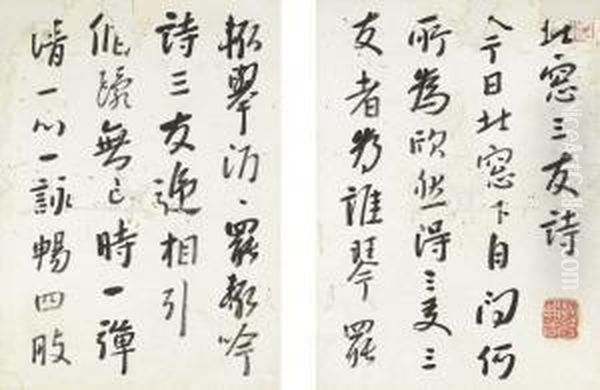 北窓三友詩
今日北窓下自問何
所為欣然得三友三
友者為誰琴罷
輙舉酒〻罷輙吟
詩三友遞相引
循環無已時一彈
愜一心一詠暢四肢